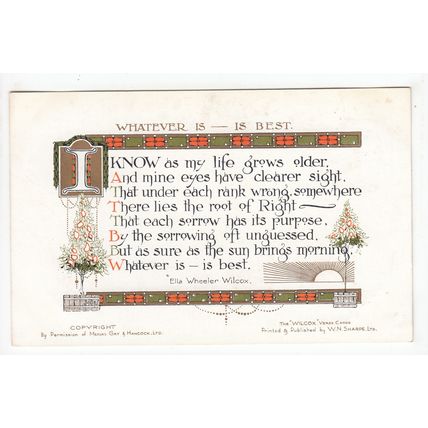 WHATEVER IS — IS BEST.
I KNOW as my life grows older,
And mine eyes have clearer sight,
That under each rank wrong, somewhere
There lies the root of Right —
That each sorrow has its purpose,
By the sorrowing oft unguessed,
But as sure as the sun brings morning,
Whatever is — is best.
"Ella Wheeler Wilcox.
COPYRIGHT
By Permission of Messrs. Gay & Hancock, Ltd.
The "WILCOX" Verse Cards
Printed & Published by W.N. SHARPE, Ltd.